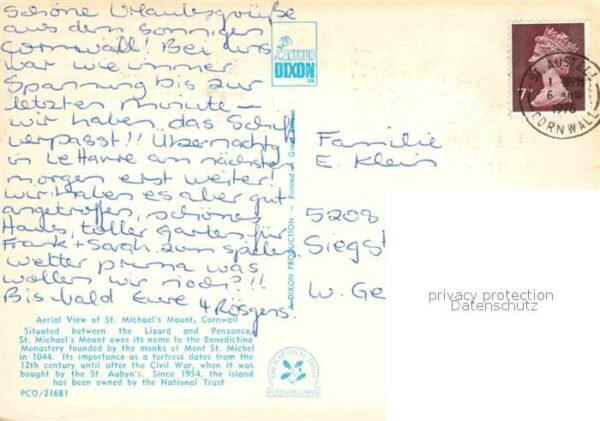 Schöne Urlaubsgrüße
aus dem sonnigen
Cornwall! Bei uns
war wie immer
Spannung bis zur
letzten Minute –
wir haben das Schiff
verpasst!! Übernachtg
in Le Havre am nächsten
morgen erst weiter!
Wir haben es aber gut
angetroffen, schönes
Haus, toller Garten für
Frank + Sarah zum spielen.
Wetter prima was
wollen wir noch?!!
Bis bald Eure 4 Rösgens.
Aerial View of St. Michael's Mount, Cornwall
Situated between the Lizard and Penzance,
St. Michael's Mount owes its name to the Benedictine
Monastery founded by the monks of Mont St. Michel
in 1044. Its importance as a fortress dates from the
12th century until after the Civil War, when it was
bought by the St. Aubyn's. Since 1954, the island
has been owned by the National Trust
PCO/21681
ARTHUR
DIXON
A DIXON PRODUCTION - Printed in
THE NATIONAL TRUST
FOUNDED 1895
ST. AUSTELL
PM
6 AUG
CORNWALL
7P
Familie
E. Klein
5208
Siegst
W. Ge
privacy protection
Datenschutz